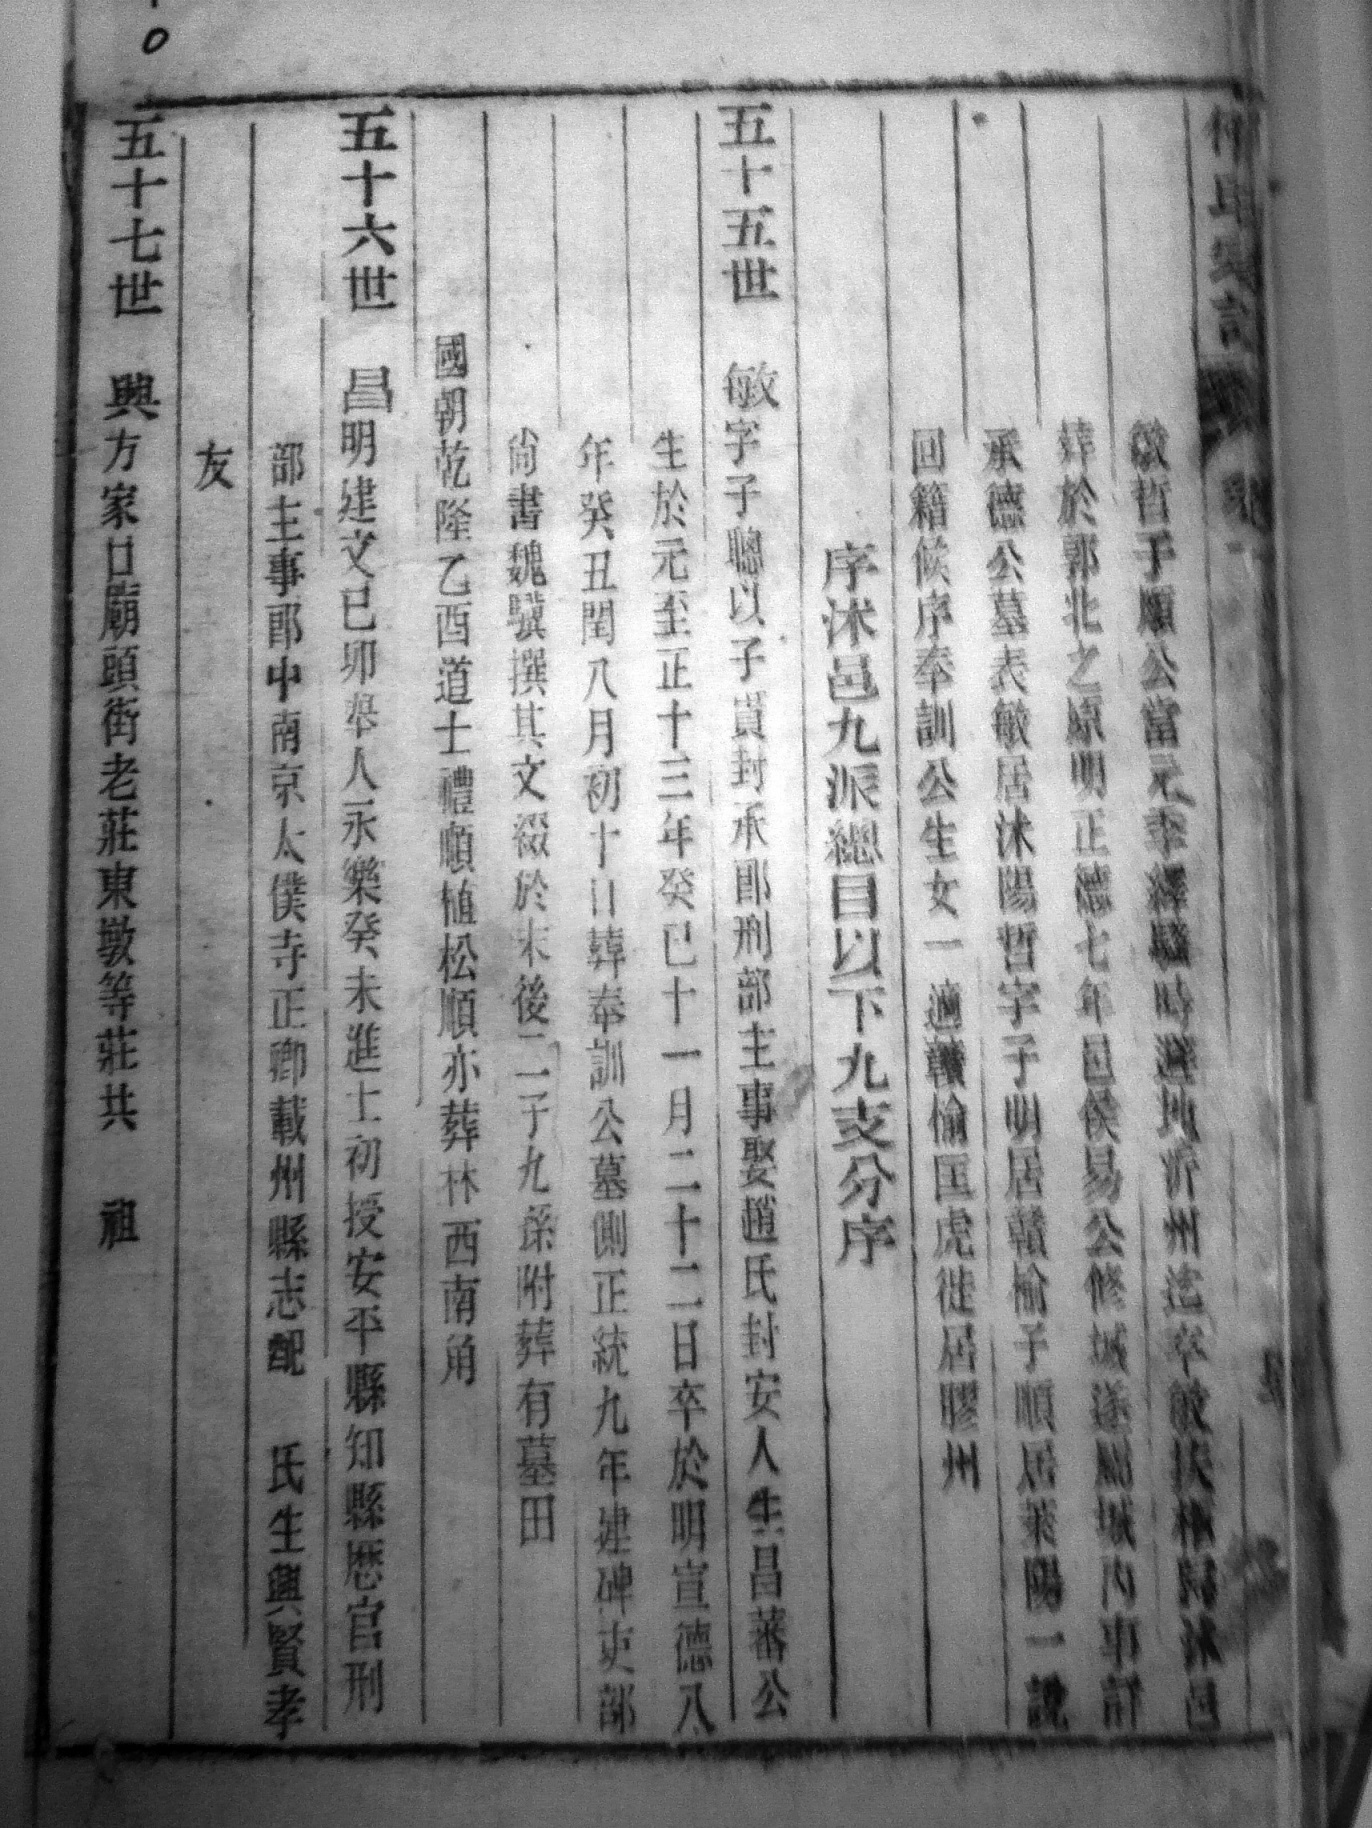 敏哲子順公當元季繹騷時避地沂州迄卒敏扶柩歸沭邑
葬於郭北之原明正德七年邑侯易公修城遂屬城内事詳
承德公墓表敏居沭陽哲字子明居贛榆子順居萊陽一說
回籍候序奉訓公生女一適贛榆匡虎徙居膠州
序沭邑九派總目以下九支分序
五十五世 敏字子聰以子貫封承郎刑部主事娶趙氏封安人生昌蕃公
生於元至正十三年癸巳十一月二十二日卒於明宣德八
年癸丑閏八月初十日葬奉訓公墓側正統九年建碑吏部
尙書魏驥撰其文綴於末後二子九孫附葬有墓田
國朝乾隆乙酉道士禮順植松順亦葬林西南角
五十六世 昌明建文己卯舉人永樂癸未進士初授安平縣知縣歷官刑
部主事郎中南京太僕寺正卿載州縣志配 氏生興賢孝
友
五十七世 興方家口廟頭街老莊東墩等莊共 祖